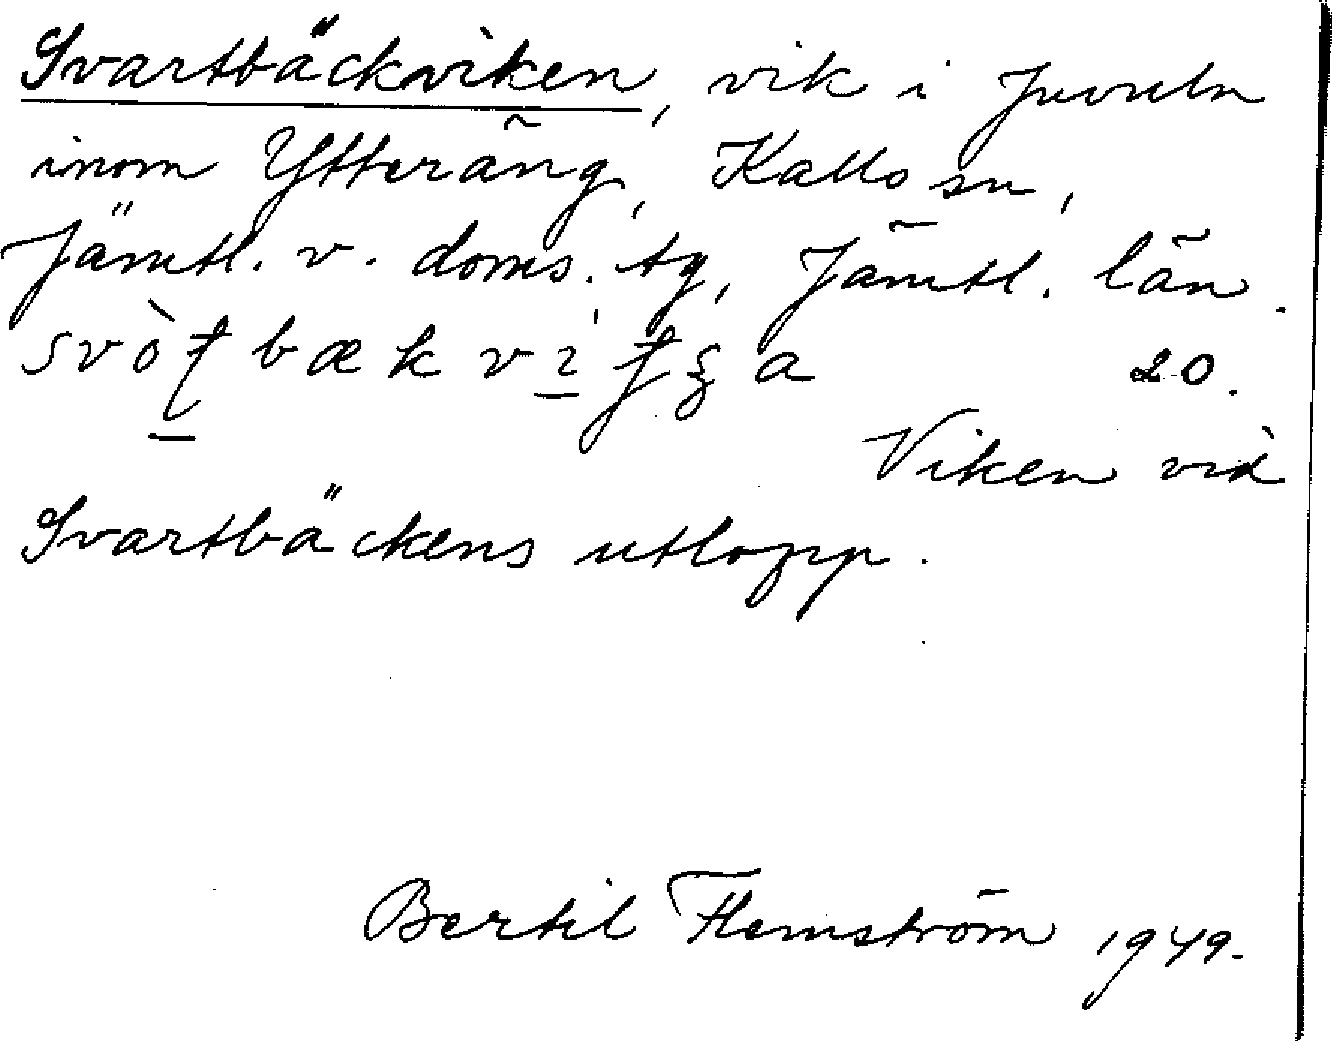 Svartbäckviken, vik i Juveln
inom Ytteräng, Kalls sn,
Jämtl. v. doms. tg, Jämtl. län.
20.
Viken vid
Svartbäckens utlopp.
Bertil Flemström 1949.